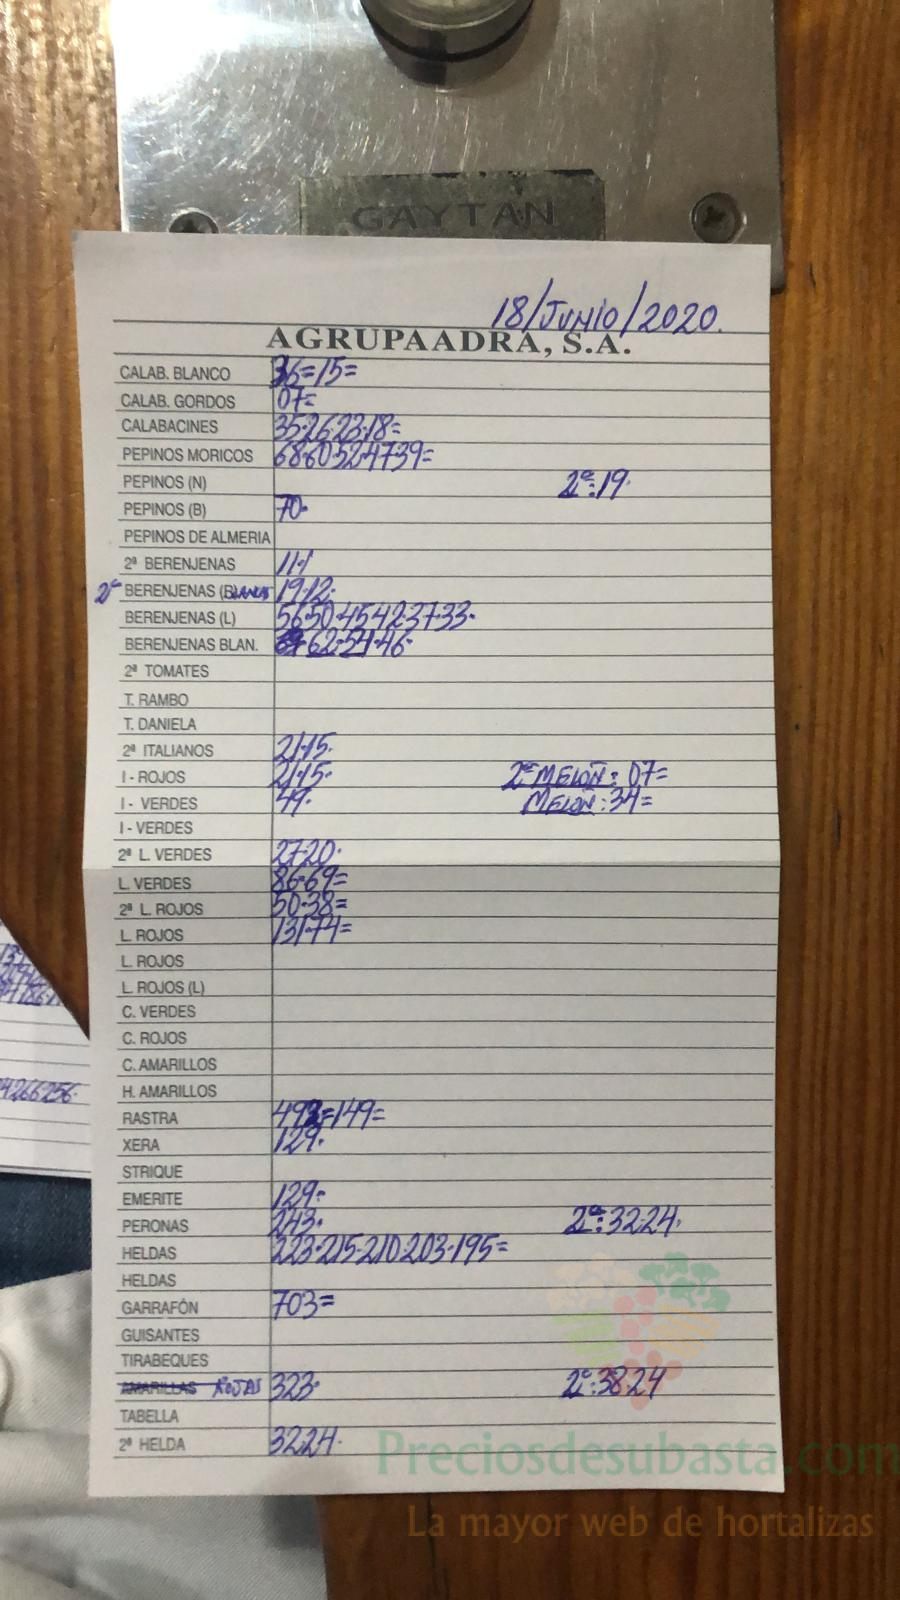 GAYTAN
18/JUNIO/2020.
AGRUPAADRA, S.A.
CALAB. BLANCO 36=15=
CALAB. GORDOS 07=
CALABACINES 35·26·23·18=
PEPINOS MORICOS 68·60·52·47·39=
PEPINOS (N) 2ª:19·
PEPINOS (B) 70·
PEPINOS DE ALMERIA
2ª BERENJENAS 11·1
2ª BERENJENAS (BLANCAS 19·12·
BERENJENAS (L) 56·50·45·42·37·33·
BERENJENAS BLAN. 62·54·46·
2ª TOMATES
T. RAMBO
T. DANIELA
2ª ITALIANOS 21·15·
I - ROJOS 21·15· 2ª MELOÑ: 07=
I - VERDES 49· MELOÑ: 34=
I - VERDES
2ª L. VERDES 27·20·
L. VERDES 86·69=
2ª L. ROJOS 50·38=
L. ROJOS 131·74=
L. ROJOS
L. ROJOS (L)
C. VERDES
C. ROJOS
C. AMARILLOS
H. AMARILLOS
RASTRA =149=
XERA 129·
STRIQUE
EMERITE 129=
PERONAS 243· 2ª:32·24·
HELDAS 223·215·210·203·195=
HELDAS
GARRAFÓN 703=
GUISANTES
TIRABEQUES
AMARILLAS ROJAS 323· 2ª:38·24
TABELLA
2ª HELDA 32·24·
4266256·
Preciosdesubasta.com
La mayor web de hortalizas